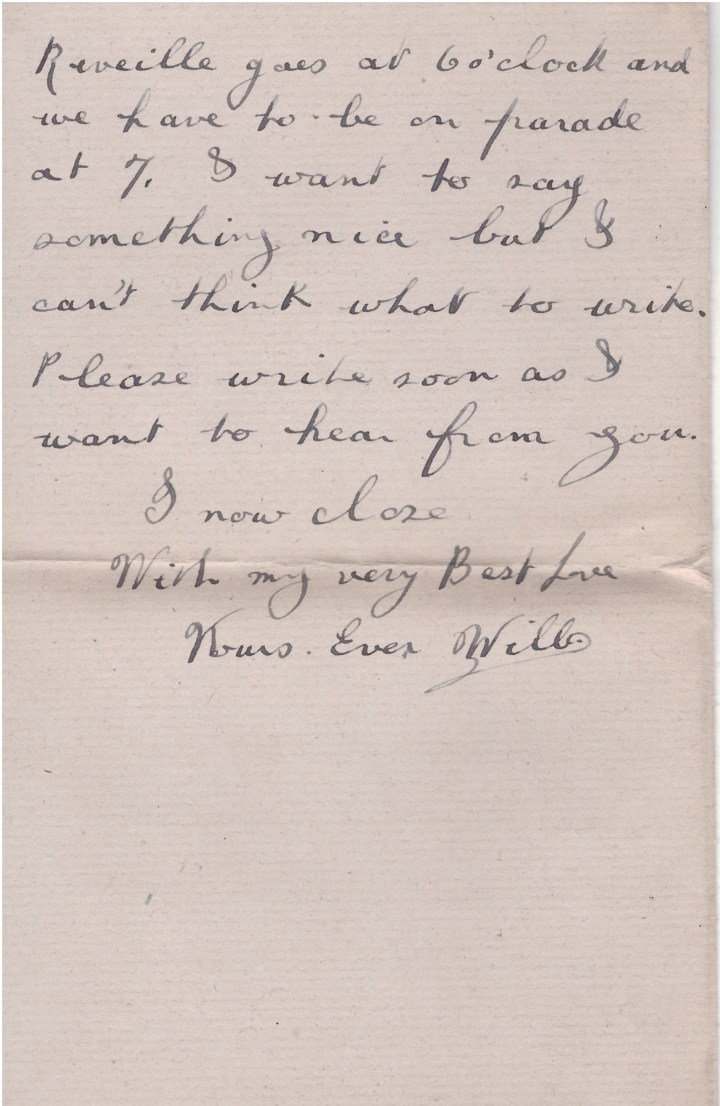 Reveille goes at 6 o'clock and
we have to be on parade
at 7. I want to say
something nice but I
can't think what to write.
Please write soon as I
want to hear from you.
I now close
With my very Best Love
Yours. Ever Will